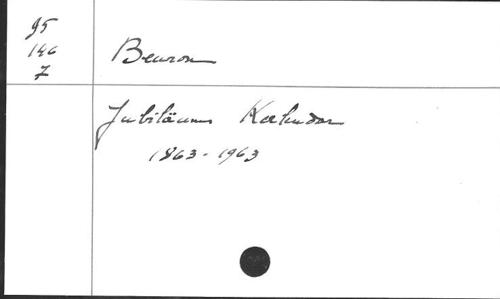 95
146
7
Beuron
Jubiläums Kalender
1863-1963